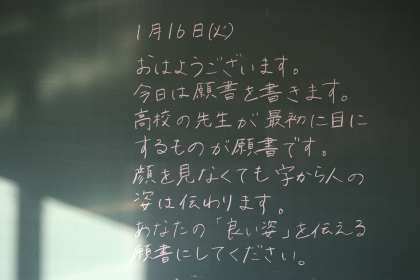 1月16日(火)
おはようございます。
今日は願書を書きます。
高校の先生が最初に目に
するものが願書です。
顔を見なくても字から人の
姿は伝わります。
あなたの「良い姿」を伝える
願書にしてください。